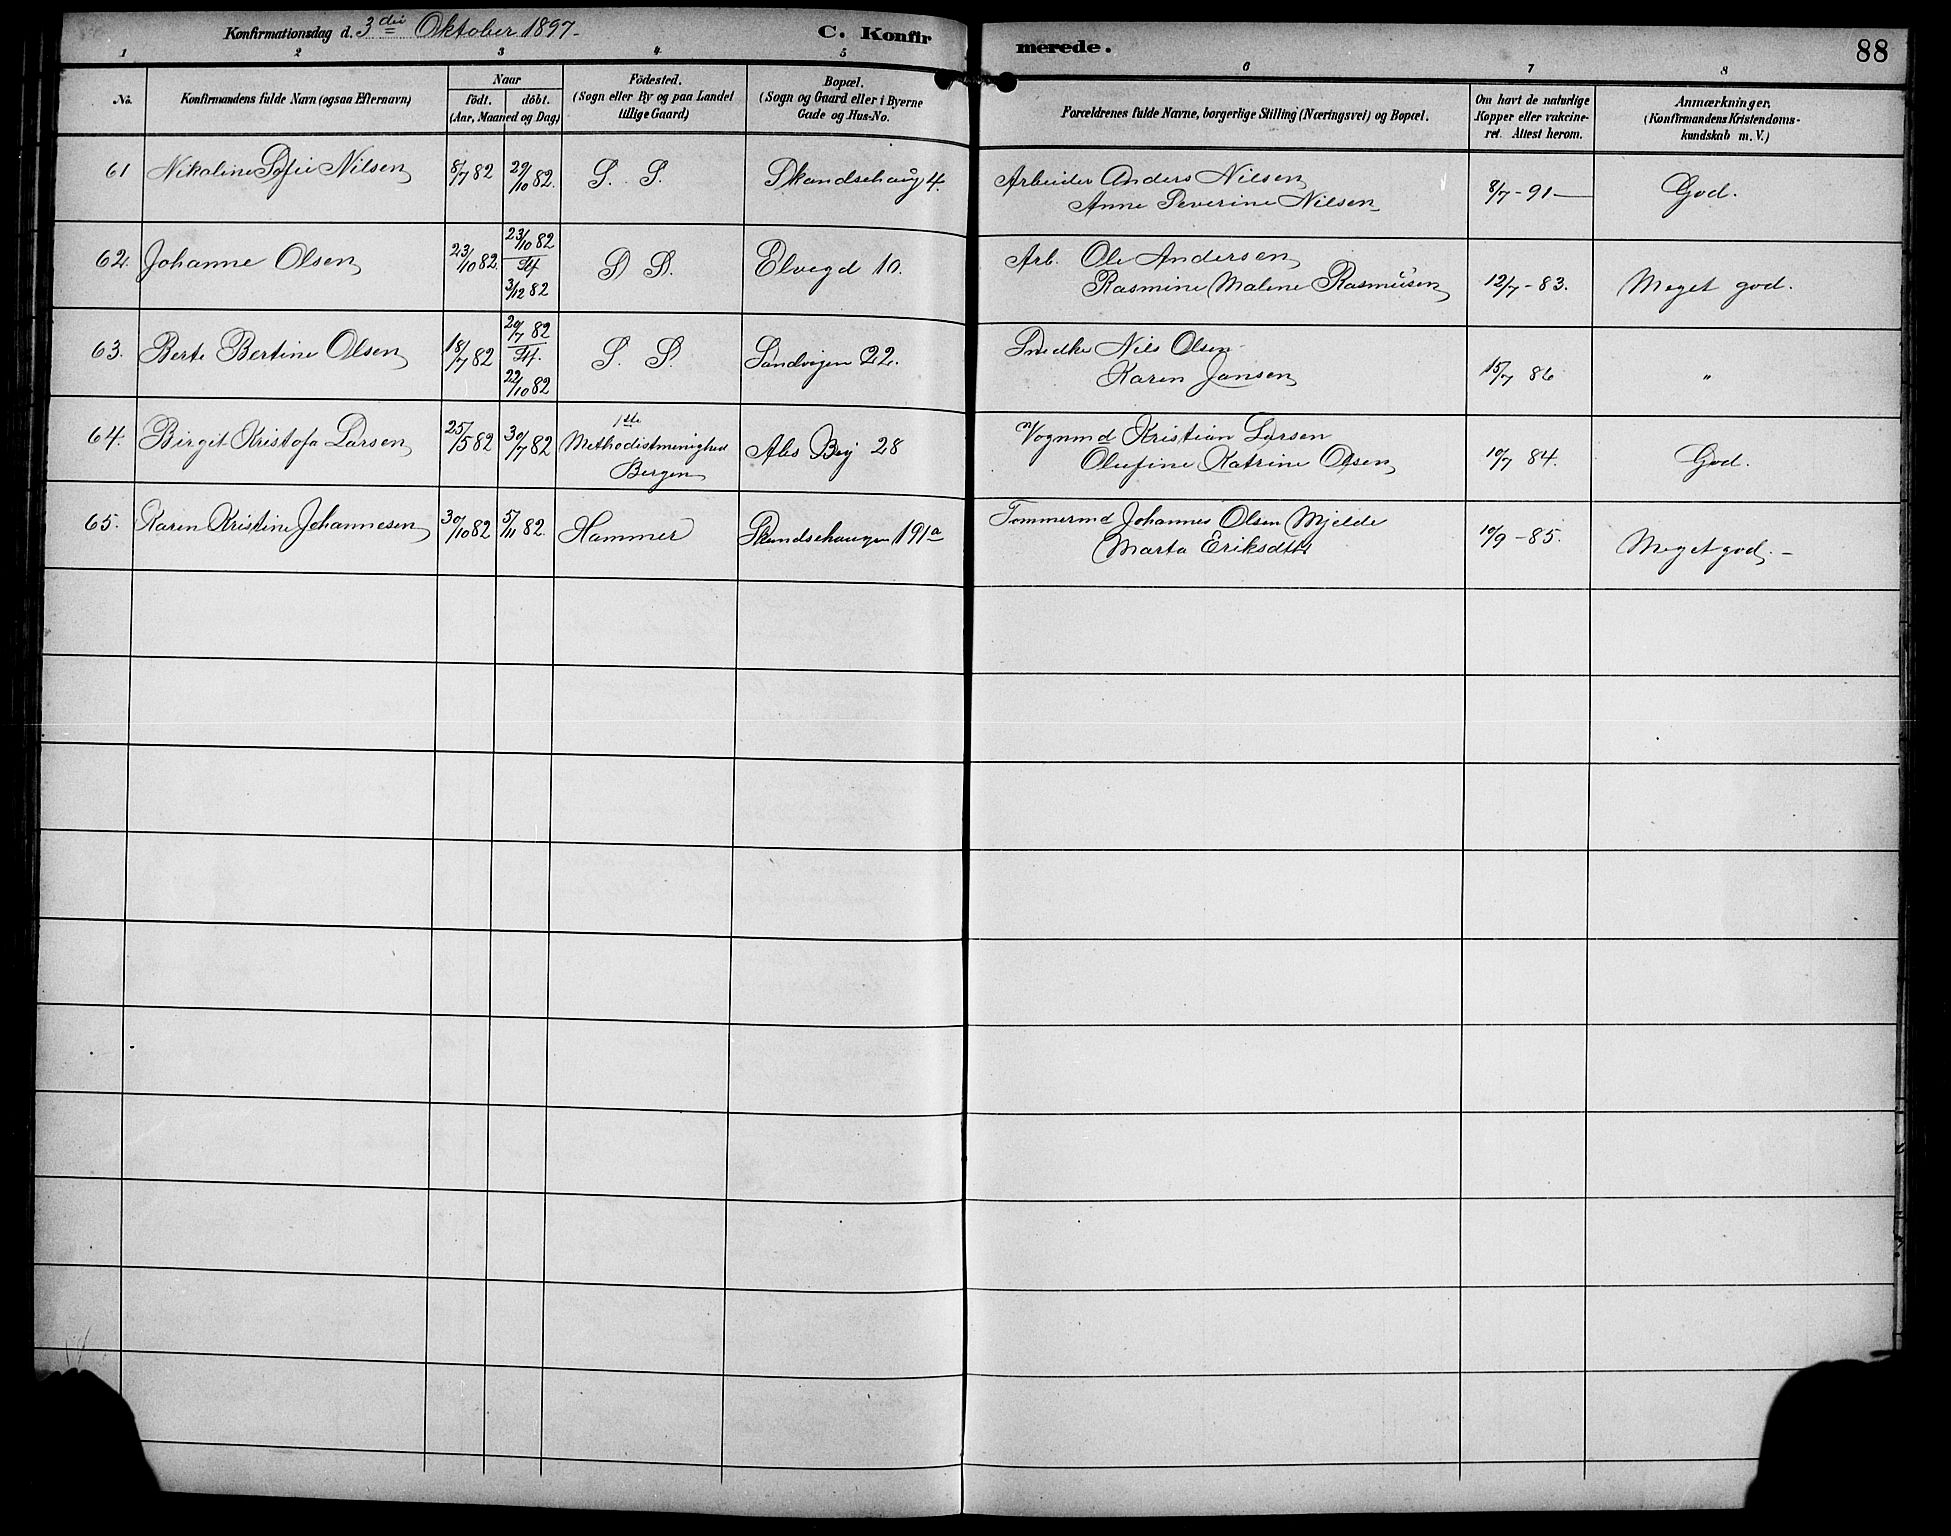 Konfirmationsdag d. 3die Oktober 1897.
C. Konfirmerede.
88
1 2 3 4 5 6 7 8
No.
Konfirmandens fulde Navn (ogsaa Efternavn)
Naar
födt. döbt.
(Aar, Maaned og Dag)
Födested.
(Sogn eller By og paa Landet
tillige Gaard)
Bopæl.
(Sogn og Gaard eller i Byerne
Gade og Hus-No.
Forældrenes fulde Navne, borgerlige Stilling (Næringsvei) og Bopæl.
Om havt de naturlige
Kopper eller vakcine-
ret. Attest herom.
Anmærkninger.
(Konfirmandens Kristendoms-
kundskab m. V.)
61 Nikoline Sofie Nilsen 8/7 82 29/10 82. S. S. Skandsehaug 4. Arbeider Anders Nilsen 8/7 - 91 — God.
Anne Severine Nilsen
62. Johanne Olsen 23/10 82. 23/10 82 S S. Elvegd 10. Arb. Ole Andersen
St
3/12 82
Rasmine Malene Rasmusen 12/7 - 83. Meget god.
63. Berte Bertine Olsen 18/7 82 29/7 82 S S. Sandvigen 22. Snedker Nils Olsen
St.
22/10 82
Karen Jansen 15/7 86 "
64. Birget Kristofa Larsen 25/5 82 30/7 82 1ste
Methodistmenighed
Bergen
Abs Bry 28 Vognmd Kristian Larsen
Olufine Katrine Olsen 10/7 84. God.
65. Karen Kristine Johannesen 30/10 82 5/11 82. Hammer Skandsehaugen 191a Tommermd Johannes Olsen Mjelde
Marta Eriksdtr 10/9 - 85. Meget god. -